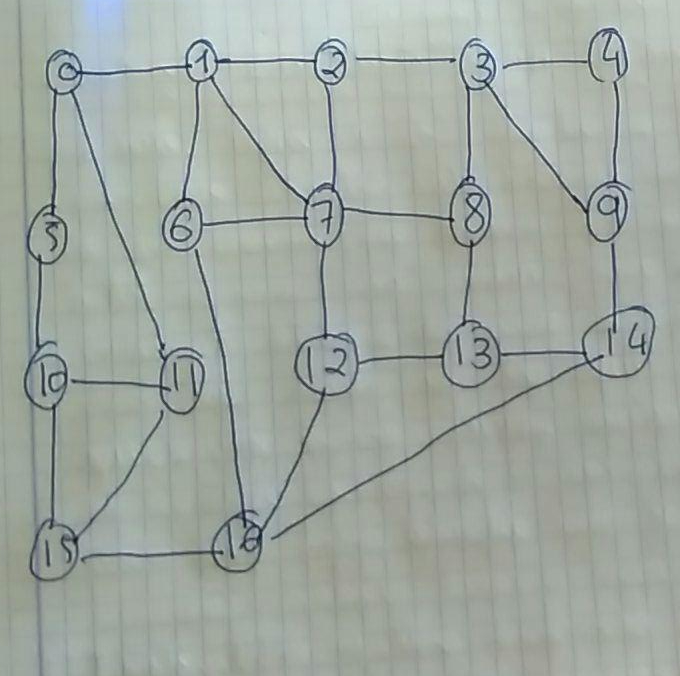 0 1 2 3 4
5 6 7 8 9
10 11 12 13 14
15 16